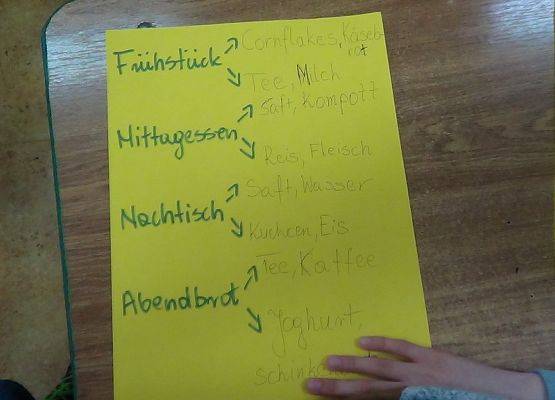 Frühstück
Cornflakes, Käseb-
rot
Tee, Milch
Mittagessen
Saft, Kompott
Reis, Fleisch
Nachtisch
Saft, Wasser
Kuchcen, Eis
Abendbrot
Tee, Kaffee
Joghurt,